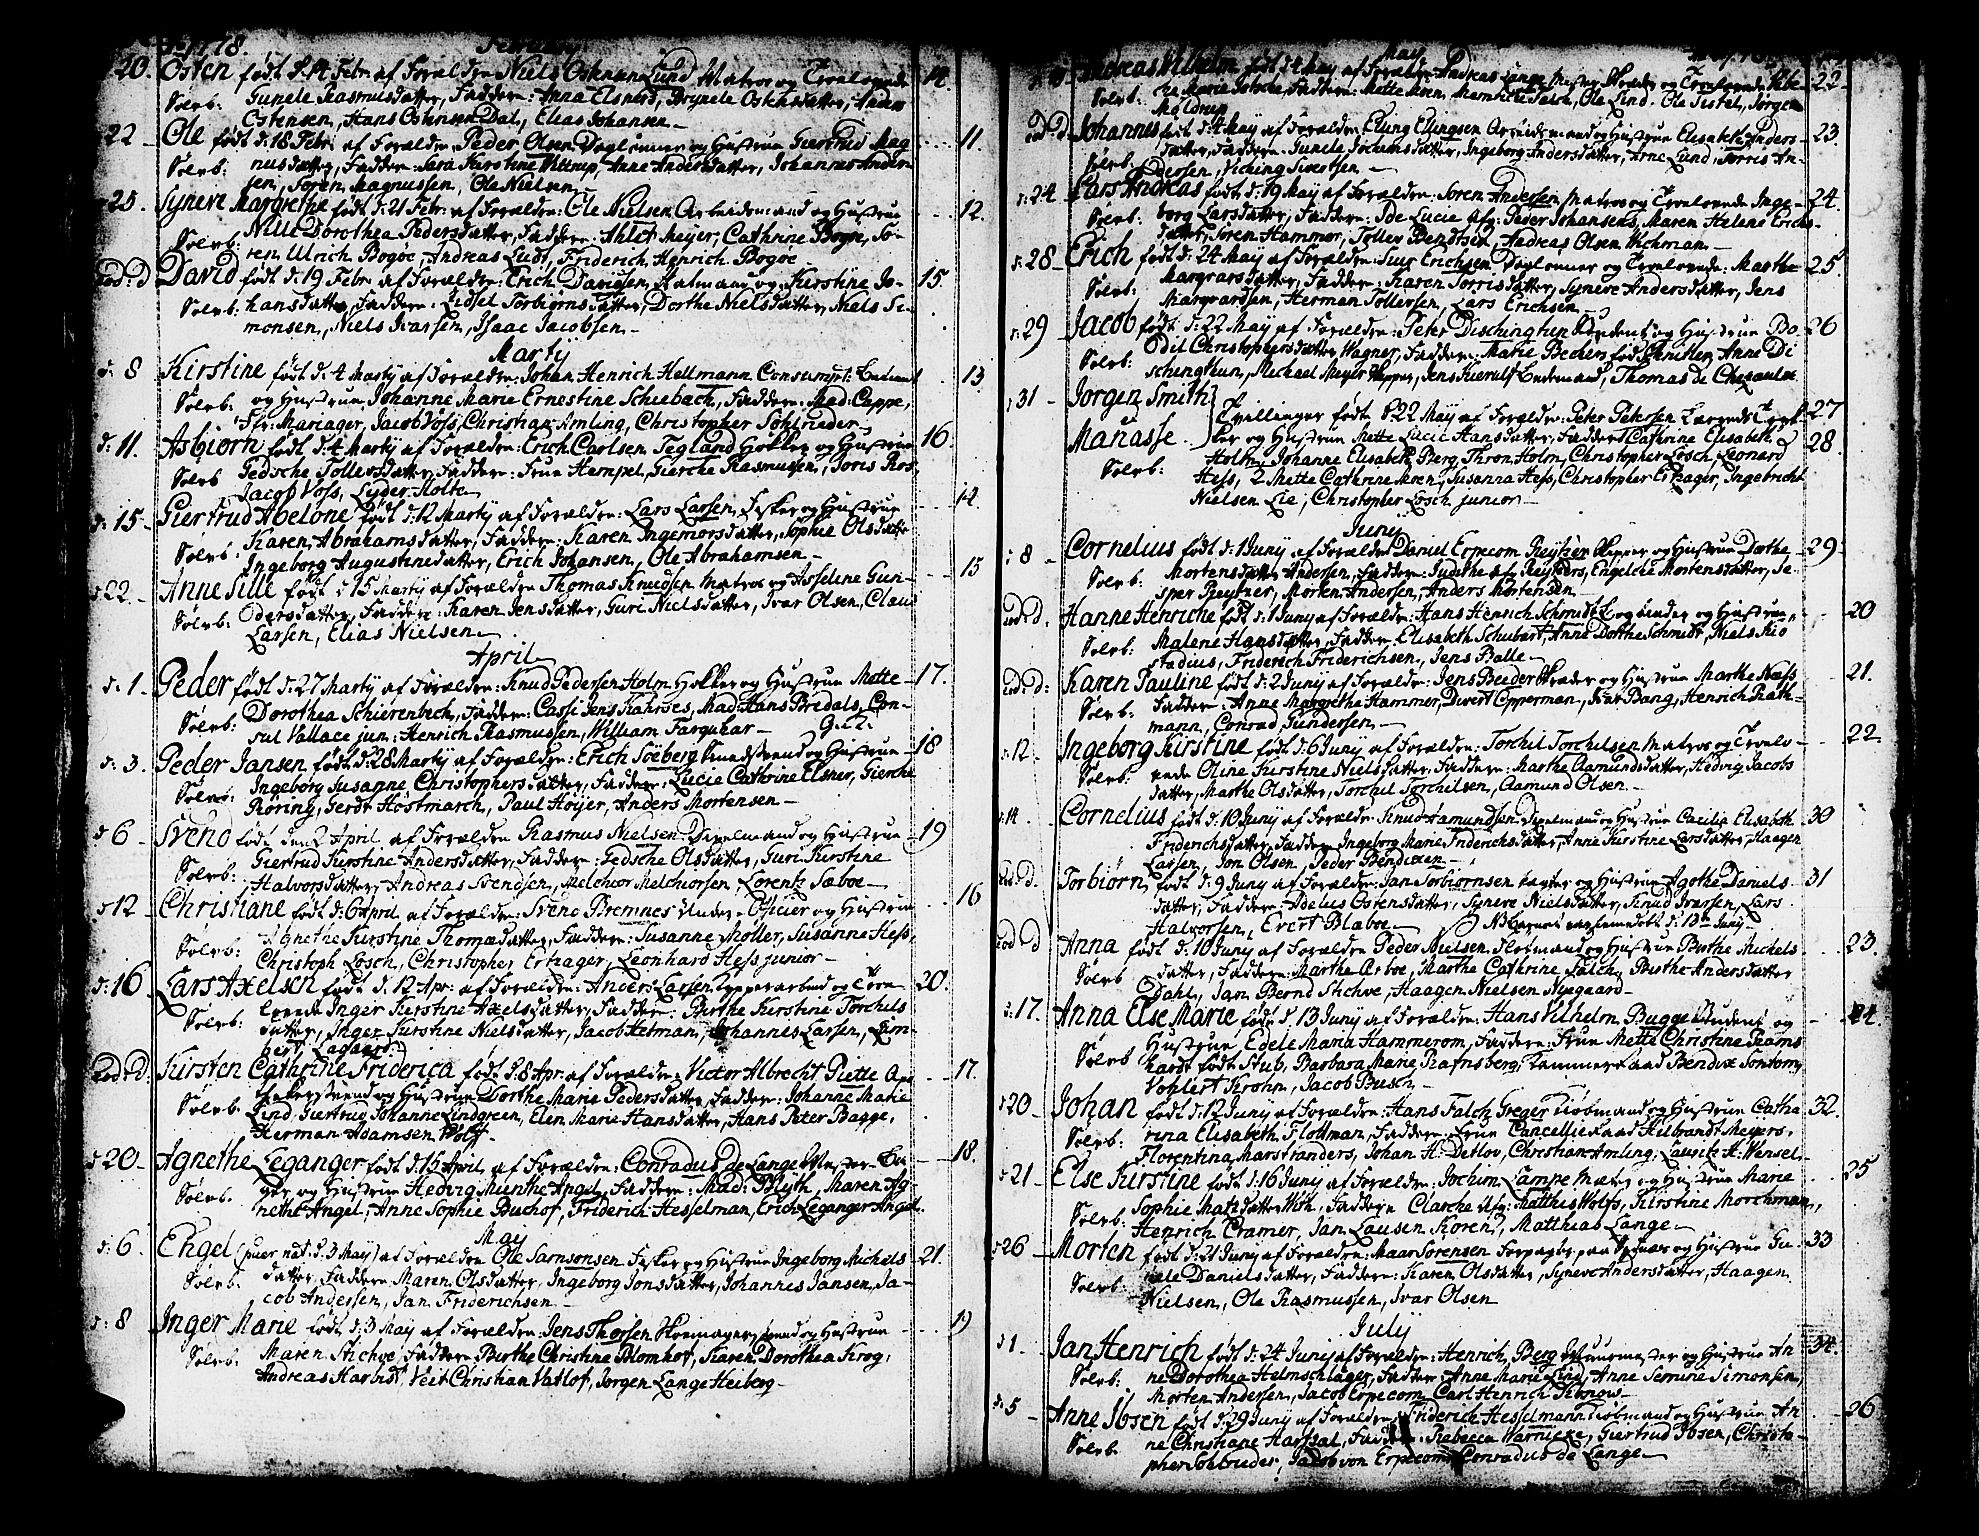 1778. February
20. Osten født d: 14 Febr: af Forældre Niels Ostensen Lund Matros og Trolovede 14.
Sølvb: Gunele Rasmusdatter, Faddere: Anna Elsners, Brynele Ostensdatter,
Ostensen, Hans Ostensen Dal, Elias Johansen
22 Ole født d: 18 Febr: af Forældre Peder Olsen Dagl:onner og Hustrue Giertrud Mag 11
Sølvb: nusdatter, Faddere: Sara Kirstine Wittrup, Anne Andersdatter, Johannes Ander
sen, Søren Magnussen, Ole Nielsen
25. Syneve Margrethe født d: 21 Febr: af Forældre: Ole Nielsen Arbeidsmand og Hustrue 12.
Sølvb: Nille Dorothea Pedersdatter, Faddere: Ahlet Meyer, Cathrine Bogøe, Sø-
ren Ulrich Bogøe, Andreas Ludt, Friderich Henrich Bogøe
Eod: d: David født d: 19 Febr: af Forældre: Erich Davidsen, og Kirstine Jo- 15.
Sølvb: hansdatter, Faddere: Lidsel Torbiørnsdatter, Dorthe Nielsdatter, Niels Si-
monsen, Niels Ivarsen, Isaac Jacobsen
Martij
d: 8 Kirstine født d: 4 Martij af Forældre: Johan Henrich Hellmann Consumpt: Betient 13
Sølvb: og Hustrue Johanne Marie Ernestine Schiebach, Faddere: Mad: Cappe,
Ffr: Mariager, Jacob Voss, Christian Amling, Christopher Sohlrieder
d: 11. Asbiørn født d: 4 Martij af Forældre: Erich Carlsen Tegland Høkker og Hustrue 16.
Sølvb Fedsche Tollersdatter, Faddere: Frue Hempel, Gierthe Rasmussen, Joris Ros,
Jacob Voss, Lyder Holte
d: 15 Giertrud Abelone født d: 12 Martij af Forældre: Lars Larsen, Fisker og Hustrue 14.
Sølvb: Karen Abrahamsdatter, Faddere: Karen Ingemorsdatter, Sophie Olsdatter
Ingeborg Augustinesdatter, Erich Johansen, Ole Abrahamsen
d: 22. Anne Sille født d: 15 Martij af Forældre Thomas Knudsen Matros og Asseline Gun- 15
Sølvb: dersdatter, Faddere: Karen Jensdatter, Guri Nielsdatter, Ivar Olsen, Claus
Larsen, Elias Nielsen
April
d: 1. Peder født d: 27 Martij af Forældre: Knud Pedersen Holm Høkker og Hustrue Mette 17.
Sølvb: Dorothea Schierenbech, Faddere: Cassi Jens Rahrses, Mad: Hans Bredals, Con-
sul Wallace jun: Henrich Rasmussen, William Farquhar
d: 3. Peder Jansen født d: 28 Martij af Forældre: Erich Søeberg Smedsvend og Hustrue 18
Sølvb: Ingeborg Susanne Christophersdatter, Faddere: Lucia Cathrine Elsner, Gierthe
Røring, Gerdt Hostmarch, Paul Høyer, Anders Mortensen
d 6 Svend født den 2 April af Forældre Rasmus Nielsen Deyelmand og Hustrue 19
Sølvb: Giertrud Kirstine Andersdatter, Faddere: Fedsche Olsdatter, Guri Kirstine
Halvorsdatter, Andreas Svendsen, Melchior Melchiorsen, Lorentz Sæbøe
d 12 Christiane født d: 6 April af Forældre: Svend Bremnes Under-Officier og Hustrue 16
Sølvb: Agnethe Kirstine Thomædatter, Faddere: Susanne Møller, Susanne Hess,
Christoph Losch, Christopher Ertzager, Leonhard Hess junior
d: 16 Lars Axelsen født d: 12 Apr: af Forældre: Anders Larsen og Tro 20.
Sølvb: lovede Inger Kirstine Axelsdatter, Faddere: Birthe Kirstine Torchils
datter, Inger Kirstine Nielsdatter, Jacob Tetman, Johannes Larsen, Lam-
bert Lagaard
Eod: d: Kirsten Cathrine Friderica født d: 8 Apr: af Forældre: Victor Albrecht Riette Apo 17.
Sølvb. thekersvend og Hustrue Dorthe Marie Pedersdatter, Faddere: Johanne Marie
Lind, Giertrud Johanne Lindgreen, Elen Marie Hansdatter, Hans Peter Bagge,
Herman Adamsen Wolff
d 20 Agnethe Leganger født d: 15 April af Forældre: Conradus de Lange 18.
Sølvb. ger og Hustrue Hedvig Munthe Angel, Faddere: Mad: Blyth, Maren Ag-
nethe Angel, Anne Sophie Buchof, Friderich Hesselman, Erich Leganger Angel.
Maij
d: 6. Engel (puer nat: d. 3 Maij) af Forældre Ole Samsonsen Fisker og Hustrue Ingeborg Michels 21.
Sølvb. datter, Faddere Maren Olsdatter, Ingeborg Jonsdatter, Johannes Jansen, Ja-
cob Andersen, Jan Friderichsen
d: 8 Inger Marie født d: 3 May af Forældre Jens Thorsen Hosemagersvend og Hustrue 19
Sølvb: Maren Stichve, Faddere Birthe Christine Blomhof, Karen Dorothea Krog,
Andreas Harbist, Veit Christian Vatlof, Jørgen Lange Heiberg
May
Andreas Vilhelm født d: 14 May af Forældre Andreas Lange Skræder og Trolovede 22
Sølvb: Marie Jolsche, Faddere: Mette Moen, Falch, Ole Lind, Ole Tistel, Jørgen
Moldrup
Eod: d. Johannes født d: 4 May af Forældre Elling Ellingsen Arbeidsmand og Hustrue Elisabeth Anders- 23.
Sølvb. datter, Faddere: Gunele Jochumsdatter, Ingeborg Andersdatter, Arne Lund, Torris An-
dersen, Viching Sivertsen
d: 24 Lars Andreas født d: 19 May af Forældre: Søren Andersen Matros og Trolovede Inge- 24.
Sølvb: borg Larsdatter, Faddere: Ide Lucie sl: Peder Johansens, Maren Helene Erichs-
datter, Søren Hammer, Tollev Bendtsen, Andreas Olsen Wichman
d: 28 Erich født d: 24 May af Forældre: Siur Erichsen Dagl:onner og Trolovede: Marthe 25
Sølvb: Margvarsdatter, Faddere: Karen Torrisdatter, Syneve Andersdatter, Jens
Margvardsen, Herman Tollersen, Lars Erichsen
d: 29 Jacob født d: 22 May af Forældre: Peter Dischingtun Student og Hustrue Bo 26
Sølvb: dil Christophersdatter Wagner, Faddere: Matie Bechen født Anne Di
schengtun, Michael Meyer Jens Tuerulf Lodsmand, Thomas de Chezaulx
d 31 Jørgen Smith } Tvillinger født d 22 May af Forældre: Peter Petersen 27
Manasse } ler og Hustrue Mette Lucie Hansdatter, Faddere: 1 Cathrine Elisabeth 28
Sølvb: Holm, Johanne Elisabeth Berg, Thron Holm, Christopher Losch, Leonard
Hess, 2 Mette Cathrine Moen, Susanna Hess, Christopher Ertzager, Ingebricht
Nielsen Lie, Christopher Losch junior
Junij
d 8 Cornelius født d: 1 Junij af Forældre Daniel Erpecom Reytzer og Hustrue Dorthe 29
Sølvb: Mortensdatter Andersen, Faddere: Judithe sl: Reytzers, Engelche Mortensdatter, Je-
sper Reytzer, Morten Andersen, Anders Mortensen
Eod: d. Hanne Henriche født d: 1 Junij af Forældre: Hans Henrich Schmidt Bogbinder og Hustrue 20
Sølvb: Malene Hansdatter, Faddere: Elisabeth Schubart, Anne Dorthe Schmidt, Niels Rio
stadius, Friderich Friderichsen, Jens Balle
Eod: d: Karen Pauline født d: 2 Junij af Forældre: Jens Beider Skræder og Hustrue Marthe Næss 21.
Sølvb: Faddere: Anne Margrethe Hammer, Divert Opperman, Ivar Bang, Henrich Rath-
mann, Conrad Gundersen
d: 12 Ingeborg Kirstine født d: 6 Junij af Forældre: Torchil Torchilsen Matros og Trolo 22.
Sølvb: vede Oline Kirstine Nielsdatter, Faddere: Marthe Aamundsdatter, Hedvig Jacobs
datter, Marthe Olsdatter, Torchil Torchilsen, Aamund Olsen
d: 14 Cornelius født d: 10 Junij af Forældre Knud Aamundsen Deyelmand og Hustrue Cecilia Elisabeth 30
Friderichsdatter, Faddere Ingeborg Marie Friderichsdatter, Anne Kirstine Larsdatter, Haagen
Larsen, Jon Olsen, Peder Bendixen
Eod: d. Torbiørn født d: 9 Junij af Forældre: Jans Torbiørnsen og Hustrue Agothe Daniels- 31
datter, Faddere: Adelus Ostensdatter, Syneve Nielsdatter, Knud Ivarsen, Lars
Halvorsen, Evert Blaboe NB Barnet er hiemmedøbt d: 13 Junij
Eod: d Anna født d: 10 Junij af Forældre Peder Nielsen og Hustrue Birthe Michels 23.
Sølvb datter, Faddere: Marthe Arboe, Marthe Cathrine Falch, Birthe Andersdatter
Dahl, Jan Bernd Stichve, Haagen Nielsen Nyegaard
d. 17. Anna Else Marie født d. 13 Junij af Forældre: Hans Vilhelm Bugge Student og 24.
Sølvb Hustrue Edele Maria Hammerom, Faddere: Frue Mette Christine Teams
hardt født Stub, Barbara Marie Rafnsberg, Kammerraad Bendix Fontom
Vohlert Krohn, Jacob Busch
d 20 Johan født d: 12 Junij af Forældre: Hans Falch Greger Kiøbmand og Hustrue Catha 32.
Sølvb: rina Elisabeth Flottman, Faddere: Frue Cancellieraad Hilbrandt Meyers,
Florentina Marstranders, Johan H: Detlov, Christian Amling, Lauritz H. Wensel
d 21 Else Kirstine født d: 16 Junij af Forældre: Jochim Lampe og Hustrue Marie 25
Sølvb: Sophie Matsdatter With, Faddere Clarche sl: Matthis Wolfs, Kirstine Morchman,
Henrich Cramer, Jan Lausen Koren, Matthias Lange
d 26 Morten født d: 21 Junij af Forældre: Maar Sørensen og Hustrue Gu- 33
Sølvb: nele Danielsdatter, Faddere: Karen Olsdatter, Syneve Andersdatter, Haagen
Nielsen, Ole Rasmussen, Ivar Olsen
Julij
d 1. Jan Henrich født d: 24 Junij af Forældre: Henrich Berg Muurmester og Hustrue An 34.
Sølvb: ne Dorothea Helmschlager, Faddere: Anne Marie Lind, Anne Semine Simonsen,
Morten Andersen, Jacob Erpecom, Carl Henrich Tibnow
d: 5 Anne Ibsen født d: 29 Junij af Forældre: Friderich Hesselmann Kiøbmand og Hustrue An 26
Sølvb. ne Christiane Hartsal, Faddere: Rebecca Warnicke, Giertrud Ibsen, Christo-
pher Sohlrieder, Jacob von Erpecom, Conradus de Lange